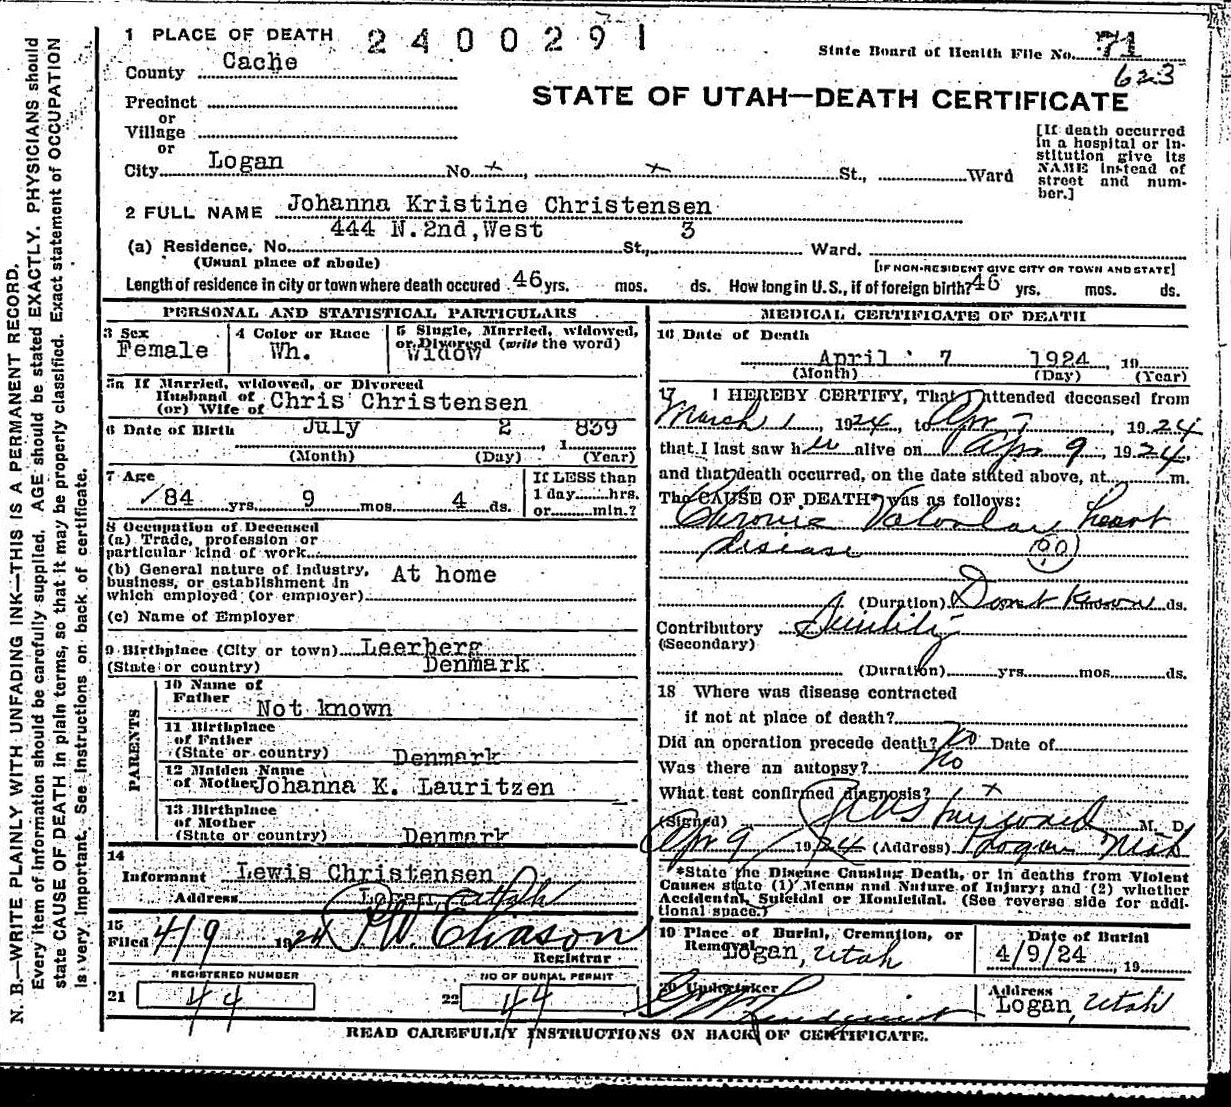 1 PLACE OF DEATH 2400291 State Board of Health File No. 71
County Cache 623
STATE OF UTAH—DEATH CERTIFICATE
Precinct
or
Village
or
City Logan No. x, x St., Ward
[If death occurred
in a hospital or in-
stitution give its
NAME instead of
street and num-
ber.]
2 FULL NAME Johanna Kristine Christensen
444 N.2nd,West 3
(a) Residence. No. St., Ward.
(Usual place of abode) [IF NON-RESIDENT GIVE CITY OR TOWN AND STATE]
Length of residence in city or town where death occured 46 yrs. mos. ds. How long in U.S., if of foreign birth? 46 yrs. mos. ds.
PERSONAL AND STATISTICAL PARTICULARS
3 Sex Female
4 Color or Race Wh.
5 Single, Married, widowed,
or Divorced (write the word)
Widow
5a If Married, widowed, or Divorced
Husband of
(or) Wife of Chris Christensen
6 Date of Birth July 2 839
(Month) (Day) 1 (Year)
7 Age
84 yrs. 9 mos. 4 ds.
If LESS than
1 day hrs.
or min.?
8 Occupation of Deceased
(a) Trade, profession or
particular kind of work
(b) General nature of industry,
business, or establishment in
which employed (or employer) At home
(c) Name of Employer
9 Birthplace (City or town) Leerberg
(State or country) Denmark
PARENTS
10 Name of
Father Not known
11 Birthplace
of Father
(State or country) Denmark
12 Maiden Name
of Mother Johanna K. Lauritzen
13 Birthplace
of Mother
(State or country) Denmark
14
Informant Lewis Christensen
Address Logan Utah
15
Filed 4/9 1924
Registrar
REGISTERED NUMBER
21 44
NO OF BURIAL PERMIT
22 44
MEDICAL CERTIFICATE OF DEATH
16 Date of Death
April 7 1924, 19
(Month) (Day) (Year)
17 I HEREBY CERTIFY, That I attended deceased from
March 1, 1924, to Apr 7, 1924
that I last saw her alive on Apr 9, 1924
and that death occurred, on the date stated above, at m.
The CAUSE OF DEATH* was as follows:
Chronic Valvular heart
disease 90
(Duration) Dont Know ds.
Contributory Senility
(Secondary)
(Duration) yrs. mos. ds.
18 Where was disease contracted
if not at place of death?
Did an operation precede death? No Date of
Was there an autopsy? No
What test confirmed diagnosis? x
(Signed) Hayward M. D.
Apr 9 1924 (Address) Logan Utah
*State the Disease Causing Death, or in deaths from Violent
Causes state (1) Means and Nature of Injury; and (2) whether
Accidental, Suicidal or Homicidal. (See reverse side for addi-
tional space.)
19 Place of Burial, Cremation, or
Removal Logan, Utah
Date of Burial
4/9/24, 19
20 Undertaker
Address
Logan, Utah
READ CAREFULLY INSTRUCTIONS ON BACK OF CERTIFICATE.
N. B.—WRITE PLAINLY WITH UNFADING INK—THIS IS A PERMANENT RECORD.
Every item of information should be carefully supplied. AGE should be stated EXACTLY. PHYSICIANS should
state CAUSE OF DEATH in plain terms, so that it may be properly classified. Exact statement of OCCUPATION
is very important. See instructions on back of certificate.